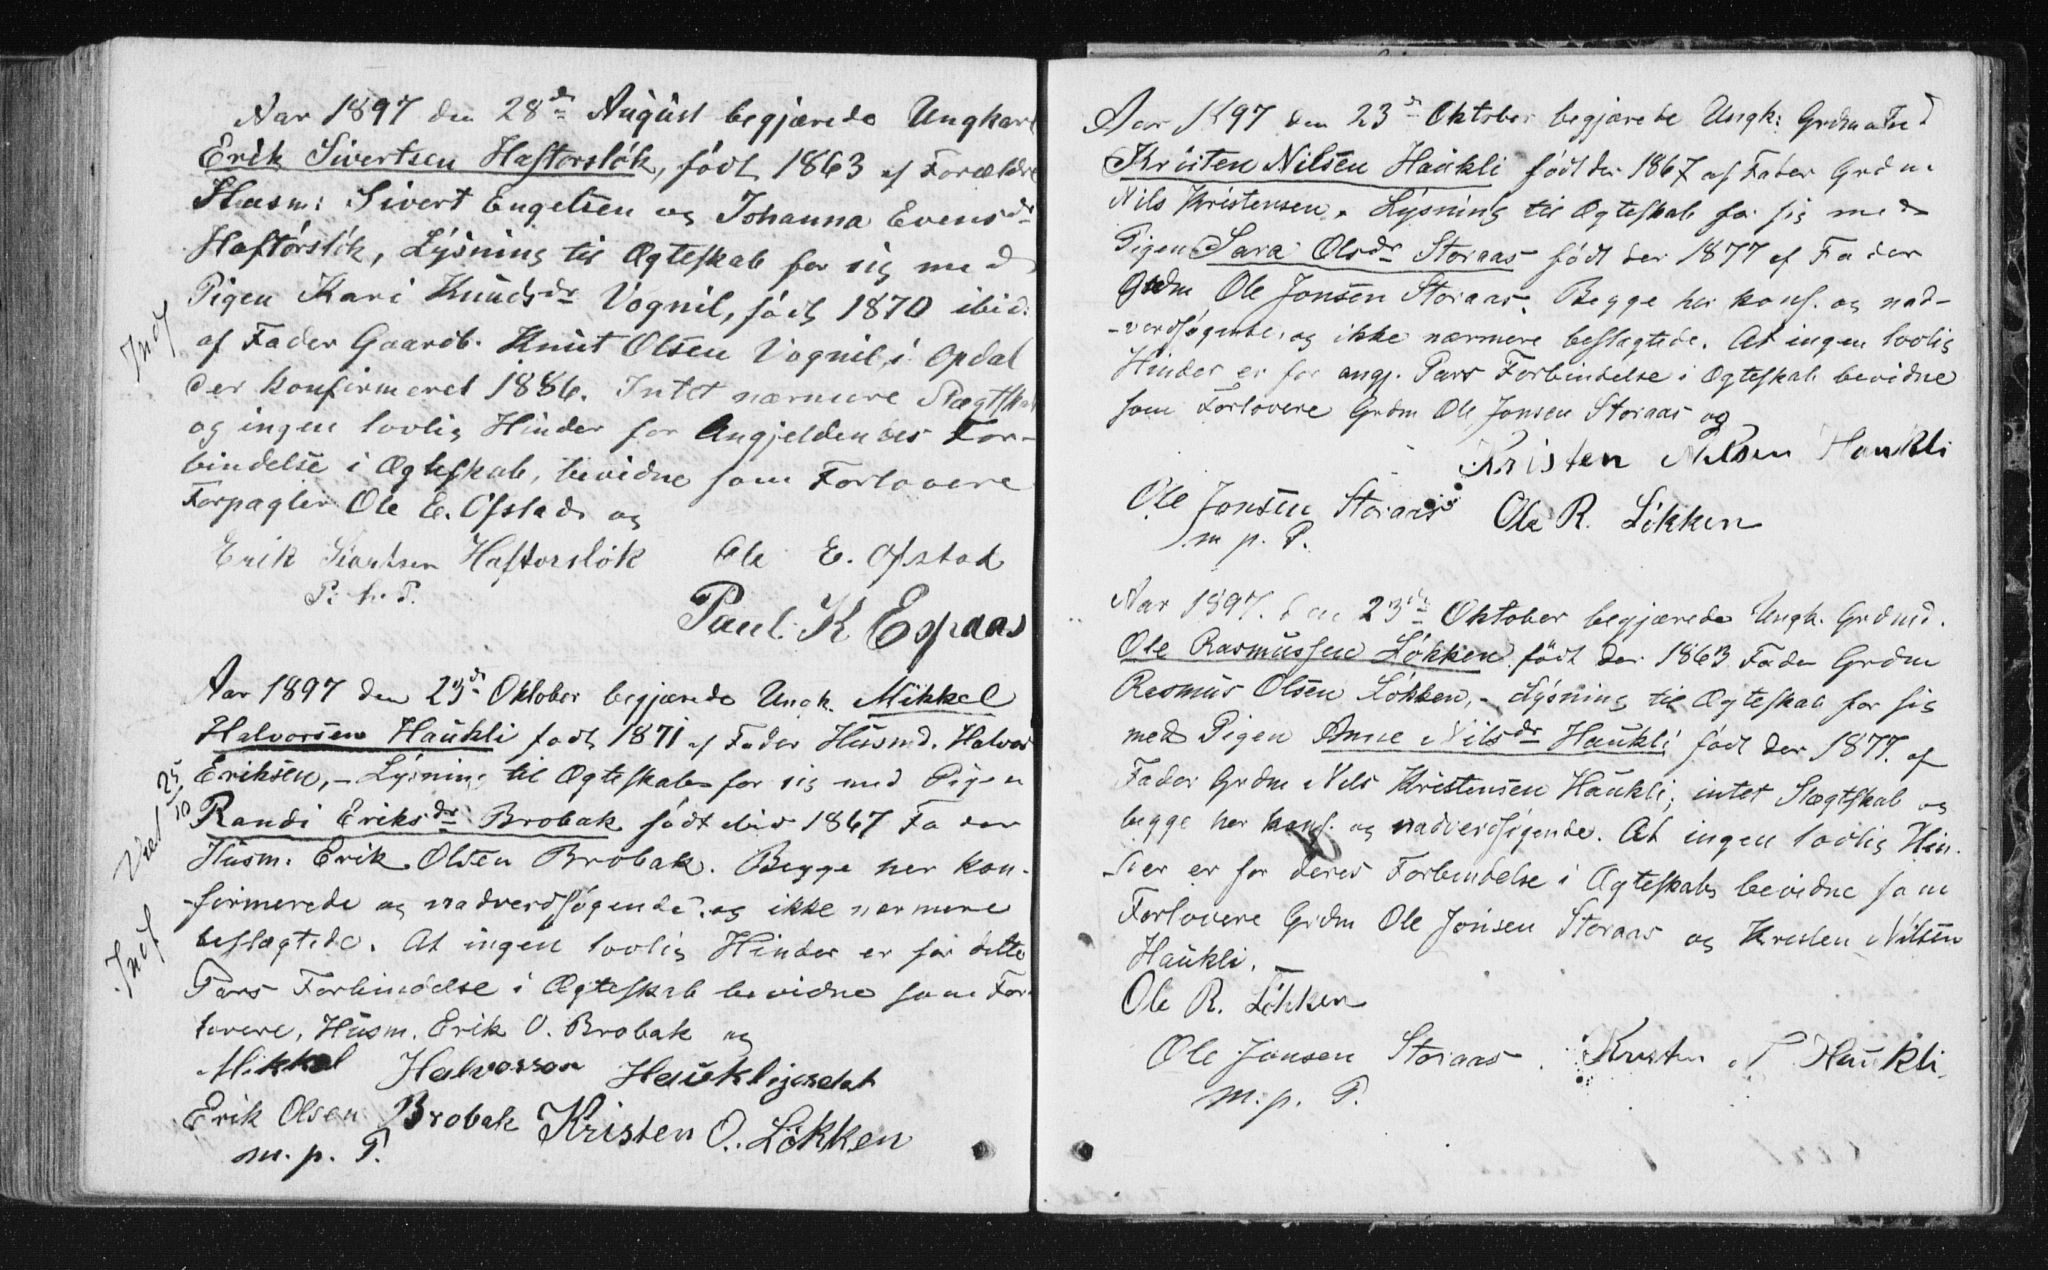 Aar 1897 den 28de August begjærede Ungkarl
Erik Sivertsen Haftorsløk, født 1863 af Forældre
Husm: Sivert Engelsen og Johanna Evensdr
Haftorsløk, Lysning til Ægteskab for sig med
Pigen Kari Knudsdr Vognil, født 1870 ibid:
af Fader Gaardb. Knut Olsen Vognil, i Opdal
der konfirmeret 1886. Intet nærmere Slægtskab
og ingen lovlig Hinder for Angjeldendes For-
bindelse i Ægteskab, bevidne som Forlovere
Forpagter Ole E. Ofstad og
Erik Sivertsen Haftorsløk Ole E. Ofstad
Paul. K Espaas
Indf
Aar 1897 den 23de Oktober begjærede Ungk. Mikkel
Halvorsen Haukli født 1871 af Fader Husmd. Halvor
Eriksen, - Lysning til Ægteskab for sig med Pigen
Randi Eriksdr Brobak født ibid 1867 Fader
Husm. Erik Olsen Brobak. Begge her kon-
firmerede og nadverdsøgende, og ikke nærmere
beslægtede. At ingen lovlig Hinder er for dette
Pars Forbindelse i Ægteskab bevidne som For-
lovere, Husm. Erik O. Brobak og
Mikkel Halvorson Haukligjerdet
Erik Olsen Brobak Kristen O. Løkken
m. p. P.
Viet 25/10
Indf
Aar 1897 den 23de Oktober begjærede Ungk: Grdm
Kristen Nilsen Haukli født der 1867 af Fader Grdm
Nils Kristensen. Lysning til Ægteskab for sig med
Pigen Sara Olsdr Storaas født der 1877 af Fader
Grdm Ole Jonsen Storaas. Begge her konf. og nad-
-verdsøgende, og ikke nærmere beslægtede. At ingen lovlig
Hinder er for angj. Pars Forbindelse i Ægteskab bevidne
som Forlovere Grdm Ole Jonsen Storaas og
Kristen Nilsen Haukli
Ole Jonsen Storaas Ole R. Løkken
m. p. P.
Aar 1897. den 23de Oktober begjærede Ungk. Grdmd.
Ole Rasmussen Løkken født der 1863 Fader Grdm
Rasmus Olsen Løkken, - Lysning til Ægteskab for sig
med Pigen Anne Nilsdr Haukli født der 1877. af
Fader Grdm Nils Kristensen Haukli, intet Slægtskab og
begge her konf. og nadverdsøgende. At ingen lovlig Hin-
der er for deres Forbindelse i Ægteskab bevidne som
Forlovere Grdm Ole Jonsen Storaas og Kristen Nilsen
Haukli.
Ole R. Løkken
Ole Jonsen Storaas. Kristen N Haukli
m. p. P.